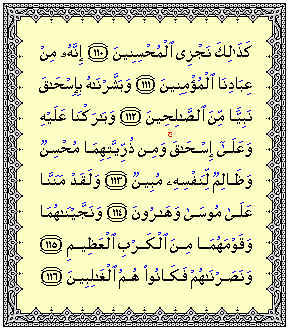 كَذَٰلِكَ نَجْزِى ٱلْمُحْسِنِينَ ١١٠ إِنَّهُۥ مِنْ
عِبَادِنَا ٱلْمُؤْمِنِينَ ١١١ وَبَشَّرْنَٰهُ بِإِسْحَٰقَ
نَبِيًّا مِّنَ ٱلصَّٰلِحِينَ ١١٢ وَبَٰرَكْنَا عَلَيْهِ
وَعَلَىٰٓ إِسْحَٰقَ ۚ وَمِن ذُرِّيَّتِهِمَا مُحْسِنٌ
وَظَالِمٌ لِّنَفْسِهِۦ مُبِينٌ ١١٣ وَلَقَدْ مَنَنَّا
عَلَىٰ مُوسَىٰ وَهَٰرُونَ ١١٤ وَنَجَّيْنَٰهُمَا
وَقَوْمَهُمَا مِنَ ٱلْكَرْبِ ٱلْعَظِيمِ ١١٥
وَنَصَرْنَٰهُمْ فَكَانُوا۟ هُمُ ٱلْغَٰلِبِينَ ١١٦